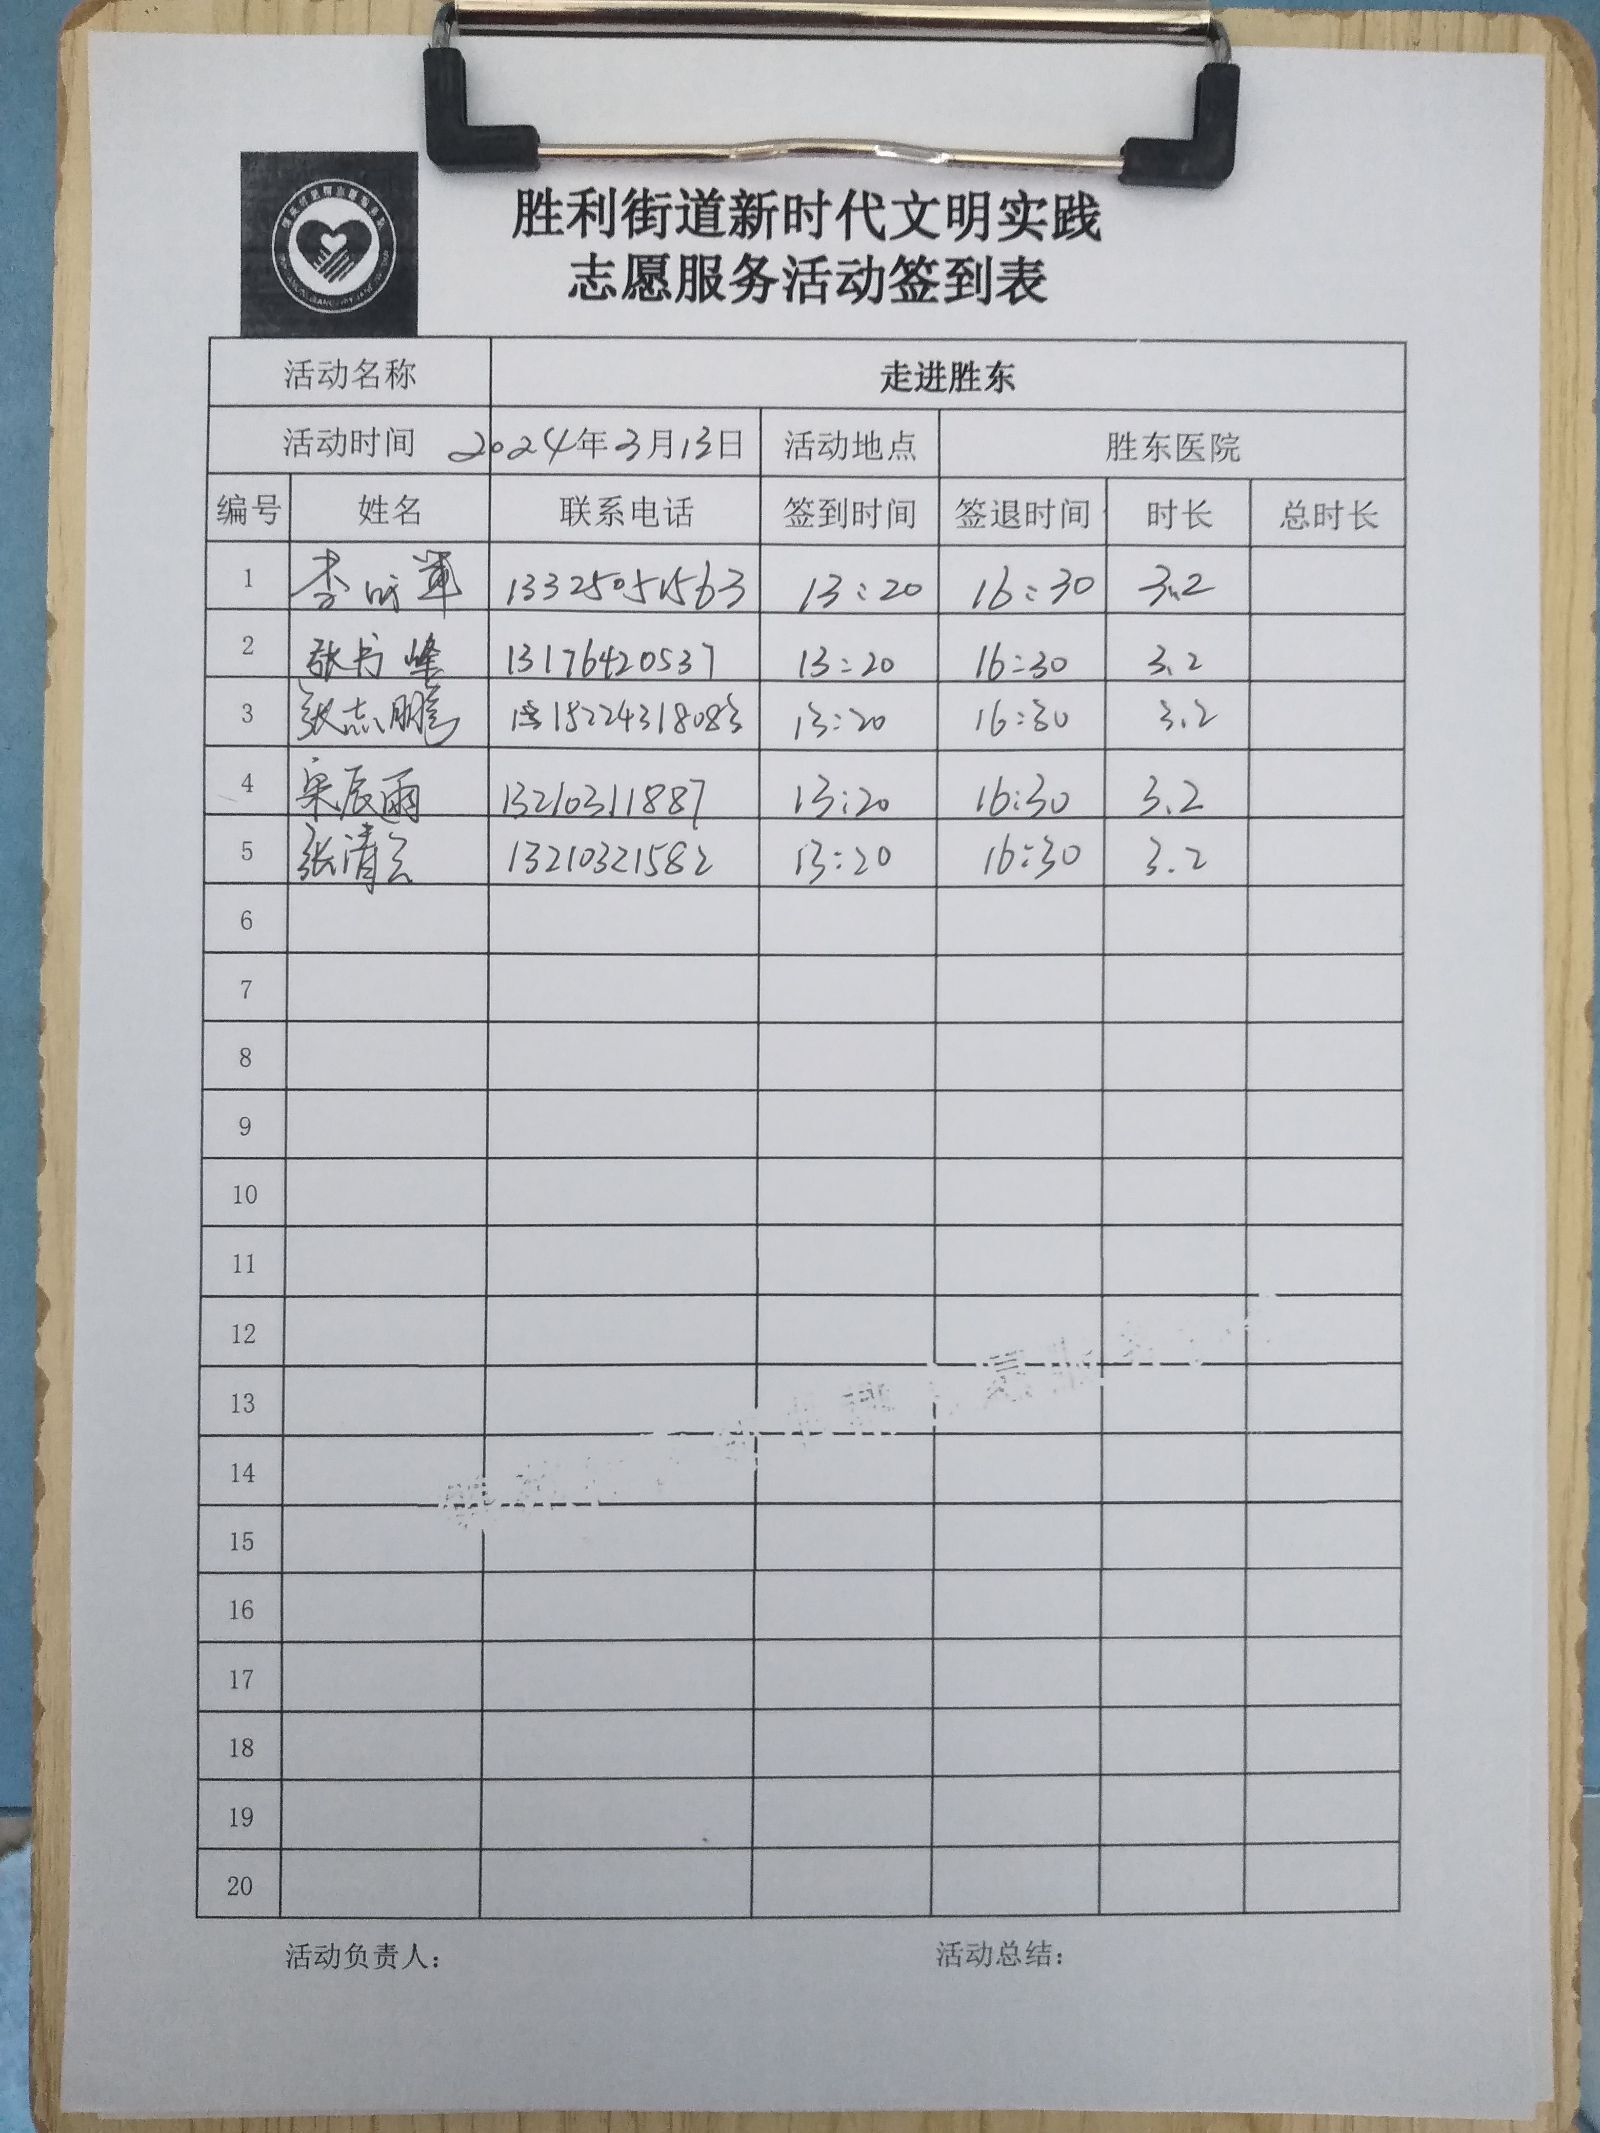 胜利街道新时代文明实践
志愿服务活动签到表
活动名称 走进胜东
活动时间 2024年3月13日 活动地点 胜东医院
编号 姓名 联系电话 签到时间 签退时间 时长 总时长
1 李 13325051563 13:20 16:30 3.2
2 张书峰 13176420537 13:20 16:30 3.2
3 张志鹏 15224318083 13:20 16:30 3.2
4 宋辰雨 13210311887 13:20 16:30 3.2
5 张清云 13210321582 13:20 16:30 3.2
6
7
8
9
10
11
12
13
14
15
16
17
18
19
20
活动负责人： 活动总结：